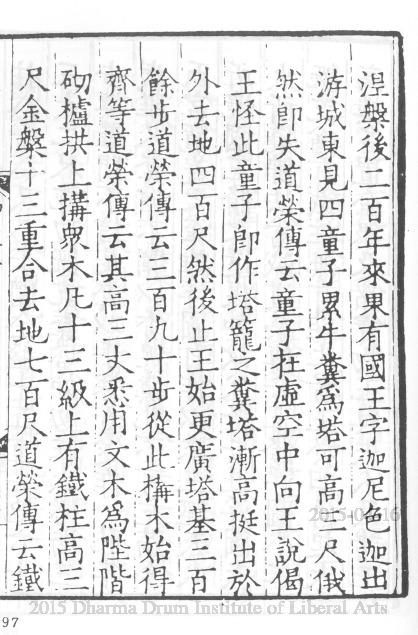 涅槃後二百年來果有國王字迦尼色迦出
游城東見四童子累牛糞爲塔可高三尺俄
然卽失道榮傳云童子在虛空中向王說偈
王怪此童子卽作塔籠之糞塔漸高挺出於
外去地四百尺然後止王始更廣塔基三百
餘步道榮傳云三百九十步從此搆木始得
齊等道榮傳云其高三丈悉用文木爲陛階
砌櫨拱上搆衆木凡十三級上有鐵柱高三
尺金槃十三重合去地七百尺道榮傳云鐵
2015 Dharma Drum Institute of Liberal Arts
97